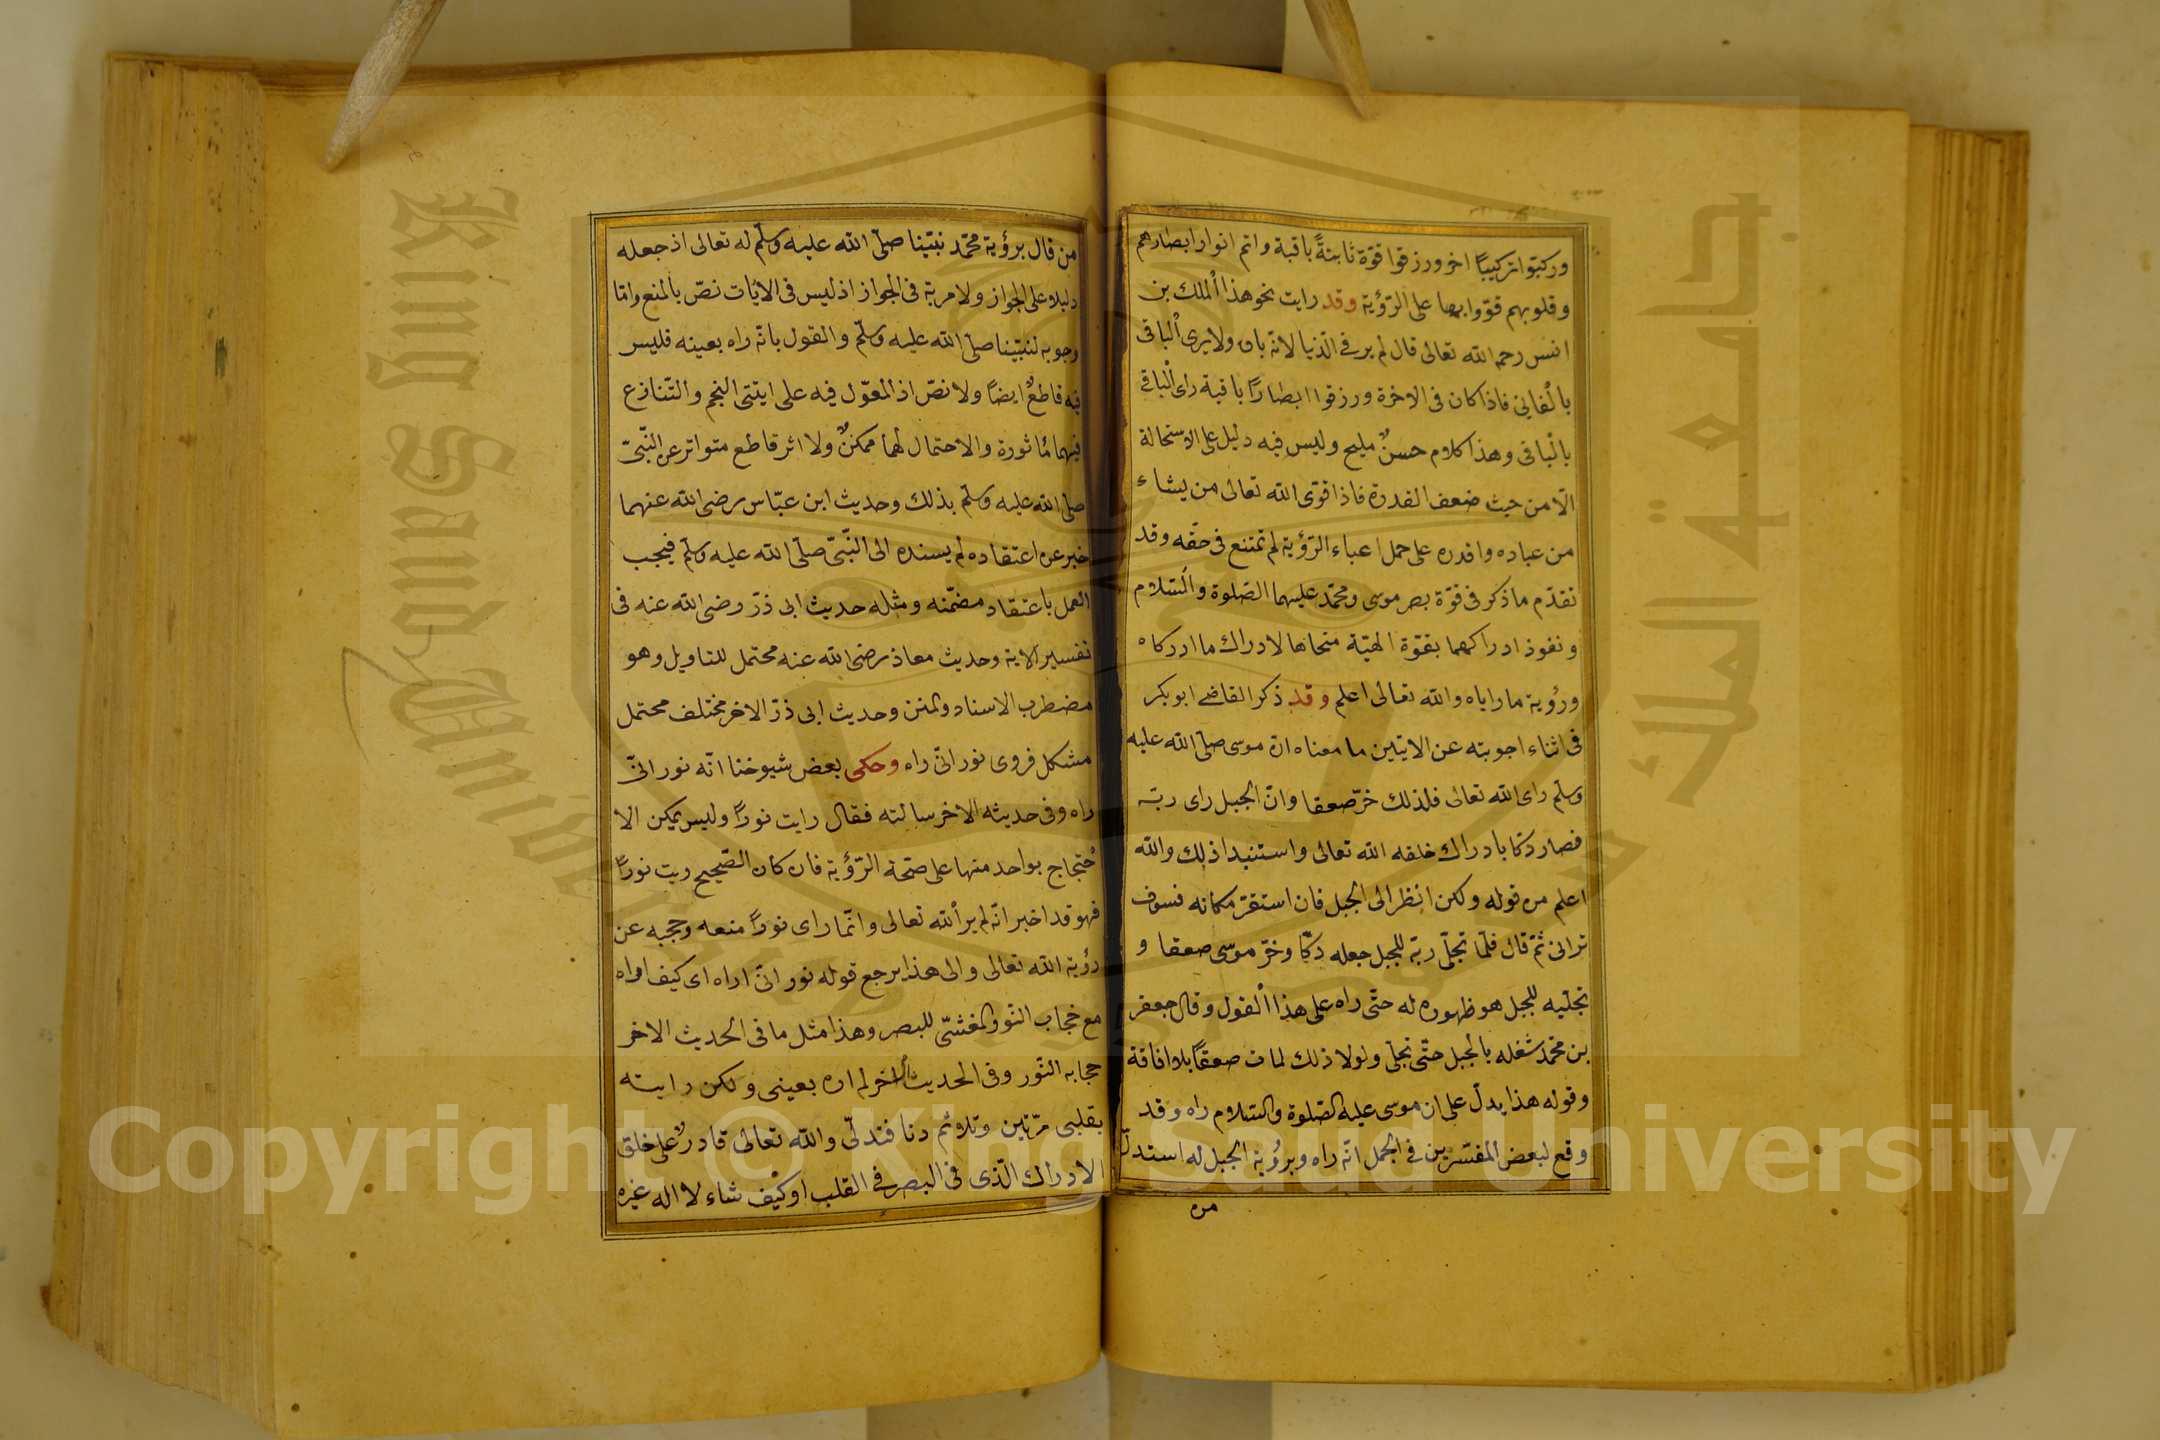 وركبوا تركيبا اخر ورزقوا قوّة ثابتةً باقية واتم انوار ابصارهم
وقلوبهم قوّوا بها على الرّؤية وقد رايت نحو هذا ألملك بن
انس رحمه الله تعالى قال لم ير في الدّنيا لانّه باق ولا يرى ألباقى
بالفانى فاذا كان فى الاخرة ورزقوا ابصارًا باقية راى الباقى
بالباقى وهذا كلام حسنٌ مليح وليس فيه دليل على الاستحالة
الّا من حيث ضعف القدرة فاذا قوّى الله تعالى من يشاء
من عباده واقدره على حمل اعباء الرّؤية لم تمتنع فى حقّه وقد
تقدّم ما ذكر فى قوّة بصر موسى ومحمّد عليهما الصّلوة والسّلام
ونفوذ ادراكهما بقوّة الهيّة منحاها لادراك ما ادركاه
ورؤية ما راياه والله تعالى اعلم وقد ذكر القاضى ابو بكر
فى اثناء اجوبته عن الايتين ما معناه انّ موسى صلّى الله عليه
وسلّم راى الله تعالى فلذلك خرّ صعقا وانّ الجبل راى ربّه
فصار دكّا بادراك خلقه الله تعالى واستنبد اذلك والله
اعلم من قوله ولكن انظر الى الجبل فان استقرّ مكانه فسوف
ترانى ثمّ قال فلمّا تجلّى ربّه للجبل جعله دكّا وخرّ موسى صعقا و
تجلّيه للجبل هو ظهوره له حتّى راه على هذا ألقول وقال جعفر
بن محمّد شغله بالجبل حتّى تجلّى ولولا ذلك لمات صعقًا بلا افاقة
وقوله هذا يدلّ على ان موسى عليه الصّلوة والسّلام راه وقد
وقع لبعض المفسّرين فى الجمل انّه راه وبرؤية الجبل له استدلّ
من
من قال برؤية محمّد نبيّنا صلّى الله عليه وسلّم له تعالى اذ جعله
دليلا على الجواز ولا مرية فى الجواز اذ ليس فى الايات نصّ بالمنع وامّا
وجوبه لنبيّنا صلّى الله عليه وسلّم والقول بانّه راه بعينه فليس
فيه قاطعٌ ايضًا ولا نصّ اذ المعوّل فيه على ايتى النجم والتّنازع
فيهما مأثورة والاحتمال لهما ممكنٌ ولا اثر قاطع متواتر عن النّبىّ
صلّى الله عليه وسلّم بذلك وحديث ابن عبّاس رضى الله عنهما
خبر عن اعتقاده لم يسنده الى النّبىّ صلّى الله عليه وسلّم فيجب
العمل باعتقاد مضمّنه ومثله حديث ابى ذرّ رضى الله عنه فى
تفسير الاية وحديث معاذ رضى الله عنه محتمل للتاويل وهو
مضطرب الاسناد والمتن وحديث ابى ذرّ الاخر مختلف محتمل
مشكل فروى نور انّى راه وحكى بعض شيوخنا انّه نور انّى
راه وفى حديثه الاخر سالته فقال رايت نورًا وليس يمكن الا
حتجاج بواحد منها على صحّة الرّؤية فان كان الصّحيح ريت نورًا
فهو قد اخبر انّه لم ير ألله تعالى وانّما راى نورًا منعه وحجبه عن
رؤية الله تعالى والى هذا يرجع قوله نور انّى اراه اى كيف اراه
مع حجاب النّور المغشّى للبصر وهذا مثل ما فى الحديث الاخر
حجابه النّور وفى الحديث الاخر لم اره بعينى ولكن رايته
بقلبى مرّتين وتلا ثم دنا فتدلّى والله تعالى قادرٌ على خلق
الادراك الّذى فى البصر فى القلب او كيف شاء لا اله غيره
King Saud University
جامعة الملك سعود
Copyright © King Saud University